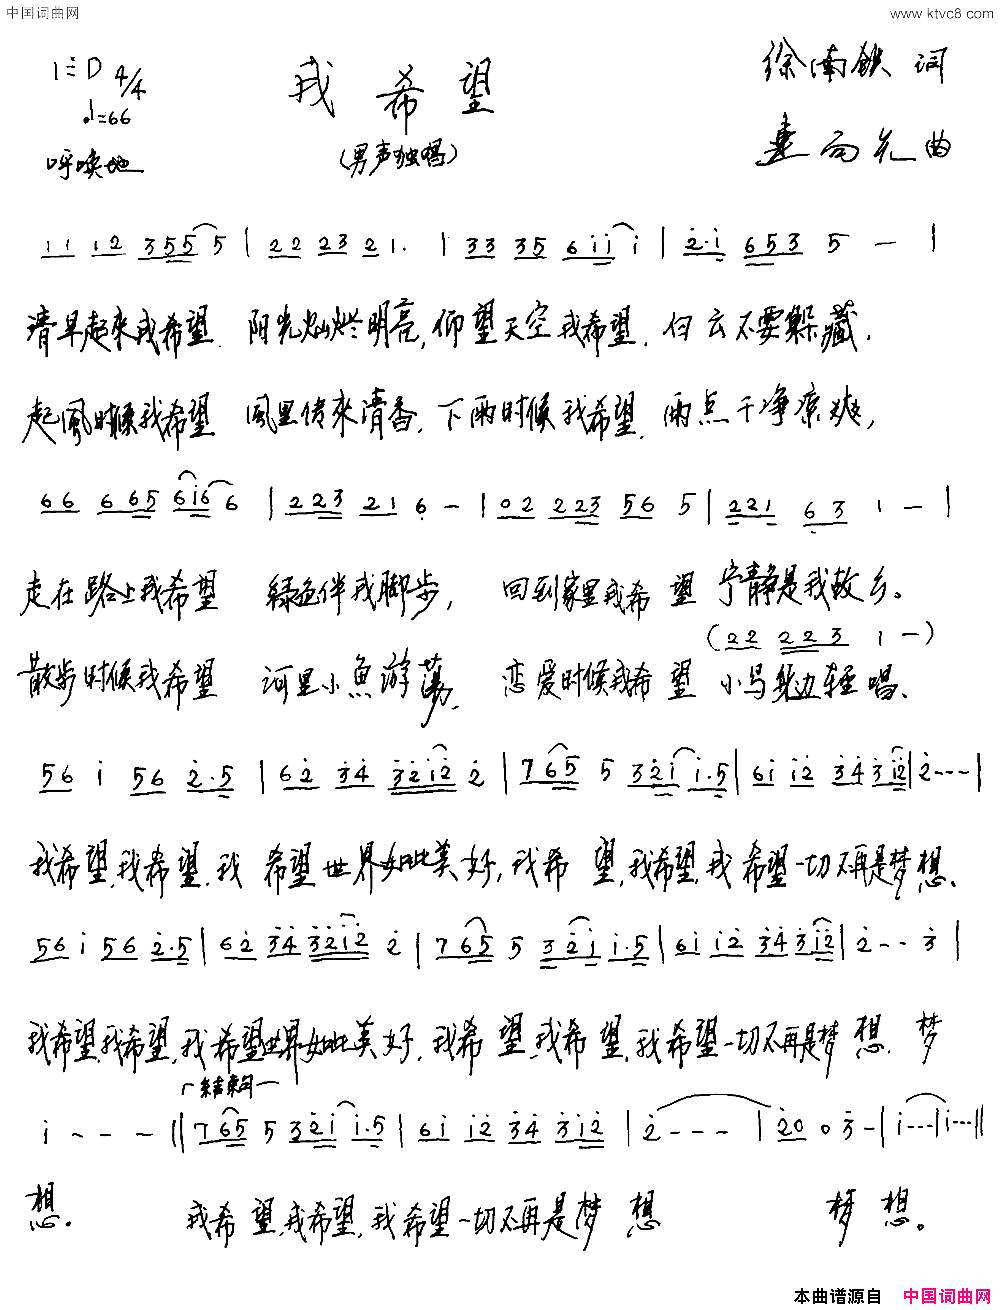 中国词曲网
www.ktvc8.com
1=D 4/4
♩=66
呼唤地
我希望
(男声独唱)
徐南铁 词
曲
1 1 1 2 3 5 5 5 | 2 2 2 3 2 1. | 3 3 3 5 6 i i i | 2̇. i 6 5 3 5 — |
清早起来我希望 阳光灿烂明亮,仰望天空我希望,白云不要躲藏,
起风时候我希望 风里传来清香,下雨时候我希望,雨点干净凉爽,
6 6 6 6 5 6 i 6 6 | 2 2 3 2 1 6̣ — | 0 2 2 2 3 5 6 5 | 2 2 1 6̣ 3 1 — |
走在路上我希望 绿色伴我脚步, 回到家里我希望 宁静是我故乡。
(2 2 2 2 3 1 —)
散步时候我希望 河里小鱼游荡, 恋爱时候我希望 小鸟身边轻唱。
5 6 i 5 6 2̇. 5 | 6 2̇ 3̇ 4̇ 3̇ 2̇ i 2̇ 2̇ | 7 6 5 5 3̇ 2̇ i i. 5 | 6 i i 2̇ 3̇ 4̇ 3̇ i 2̇ | 2̇ - - - |
我希望,我希望,我希望世界如此美好,我希望,我希望,我希望一切不再是梦想。
5 6 i 5 6 2̇. 5 | 6 2̇ 3̇ 4̇ 3̇ 2̇ i 2̇ 2̇ | 7 6 5 5 3̇ 2̇ i i. 5 | 6 i i 2̇ 3̇ 4̇ 3̇ i 2̇ | 2̇ - - 3̇ |
我希望,我希望,我希望世界如此美好,我希望,我希望,我希望一切不再是梦想,梦
结束句
i - - - ‖ 7 6 5 5 3̇ 2̇ i i. 5 | 6 i i 2̇ 3̇ 4̇ 3̇ i 2̇ | 2̇ - - - | 2̇ 0 0 3̇ - | i - - - | i - - - ‖
想。 我希望,我希望,我希望一切不再是梦想 梦想。
本曲谱源自 中国词曲网